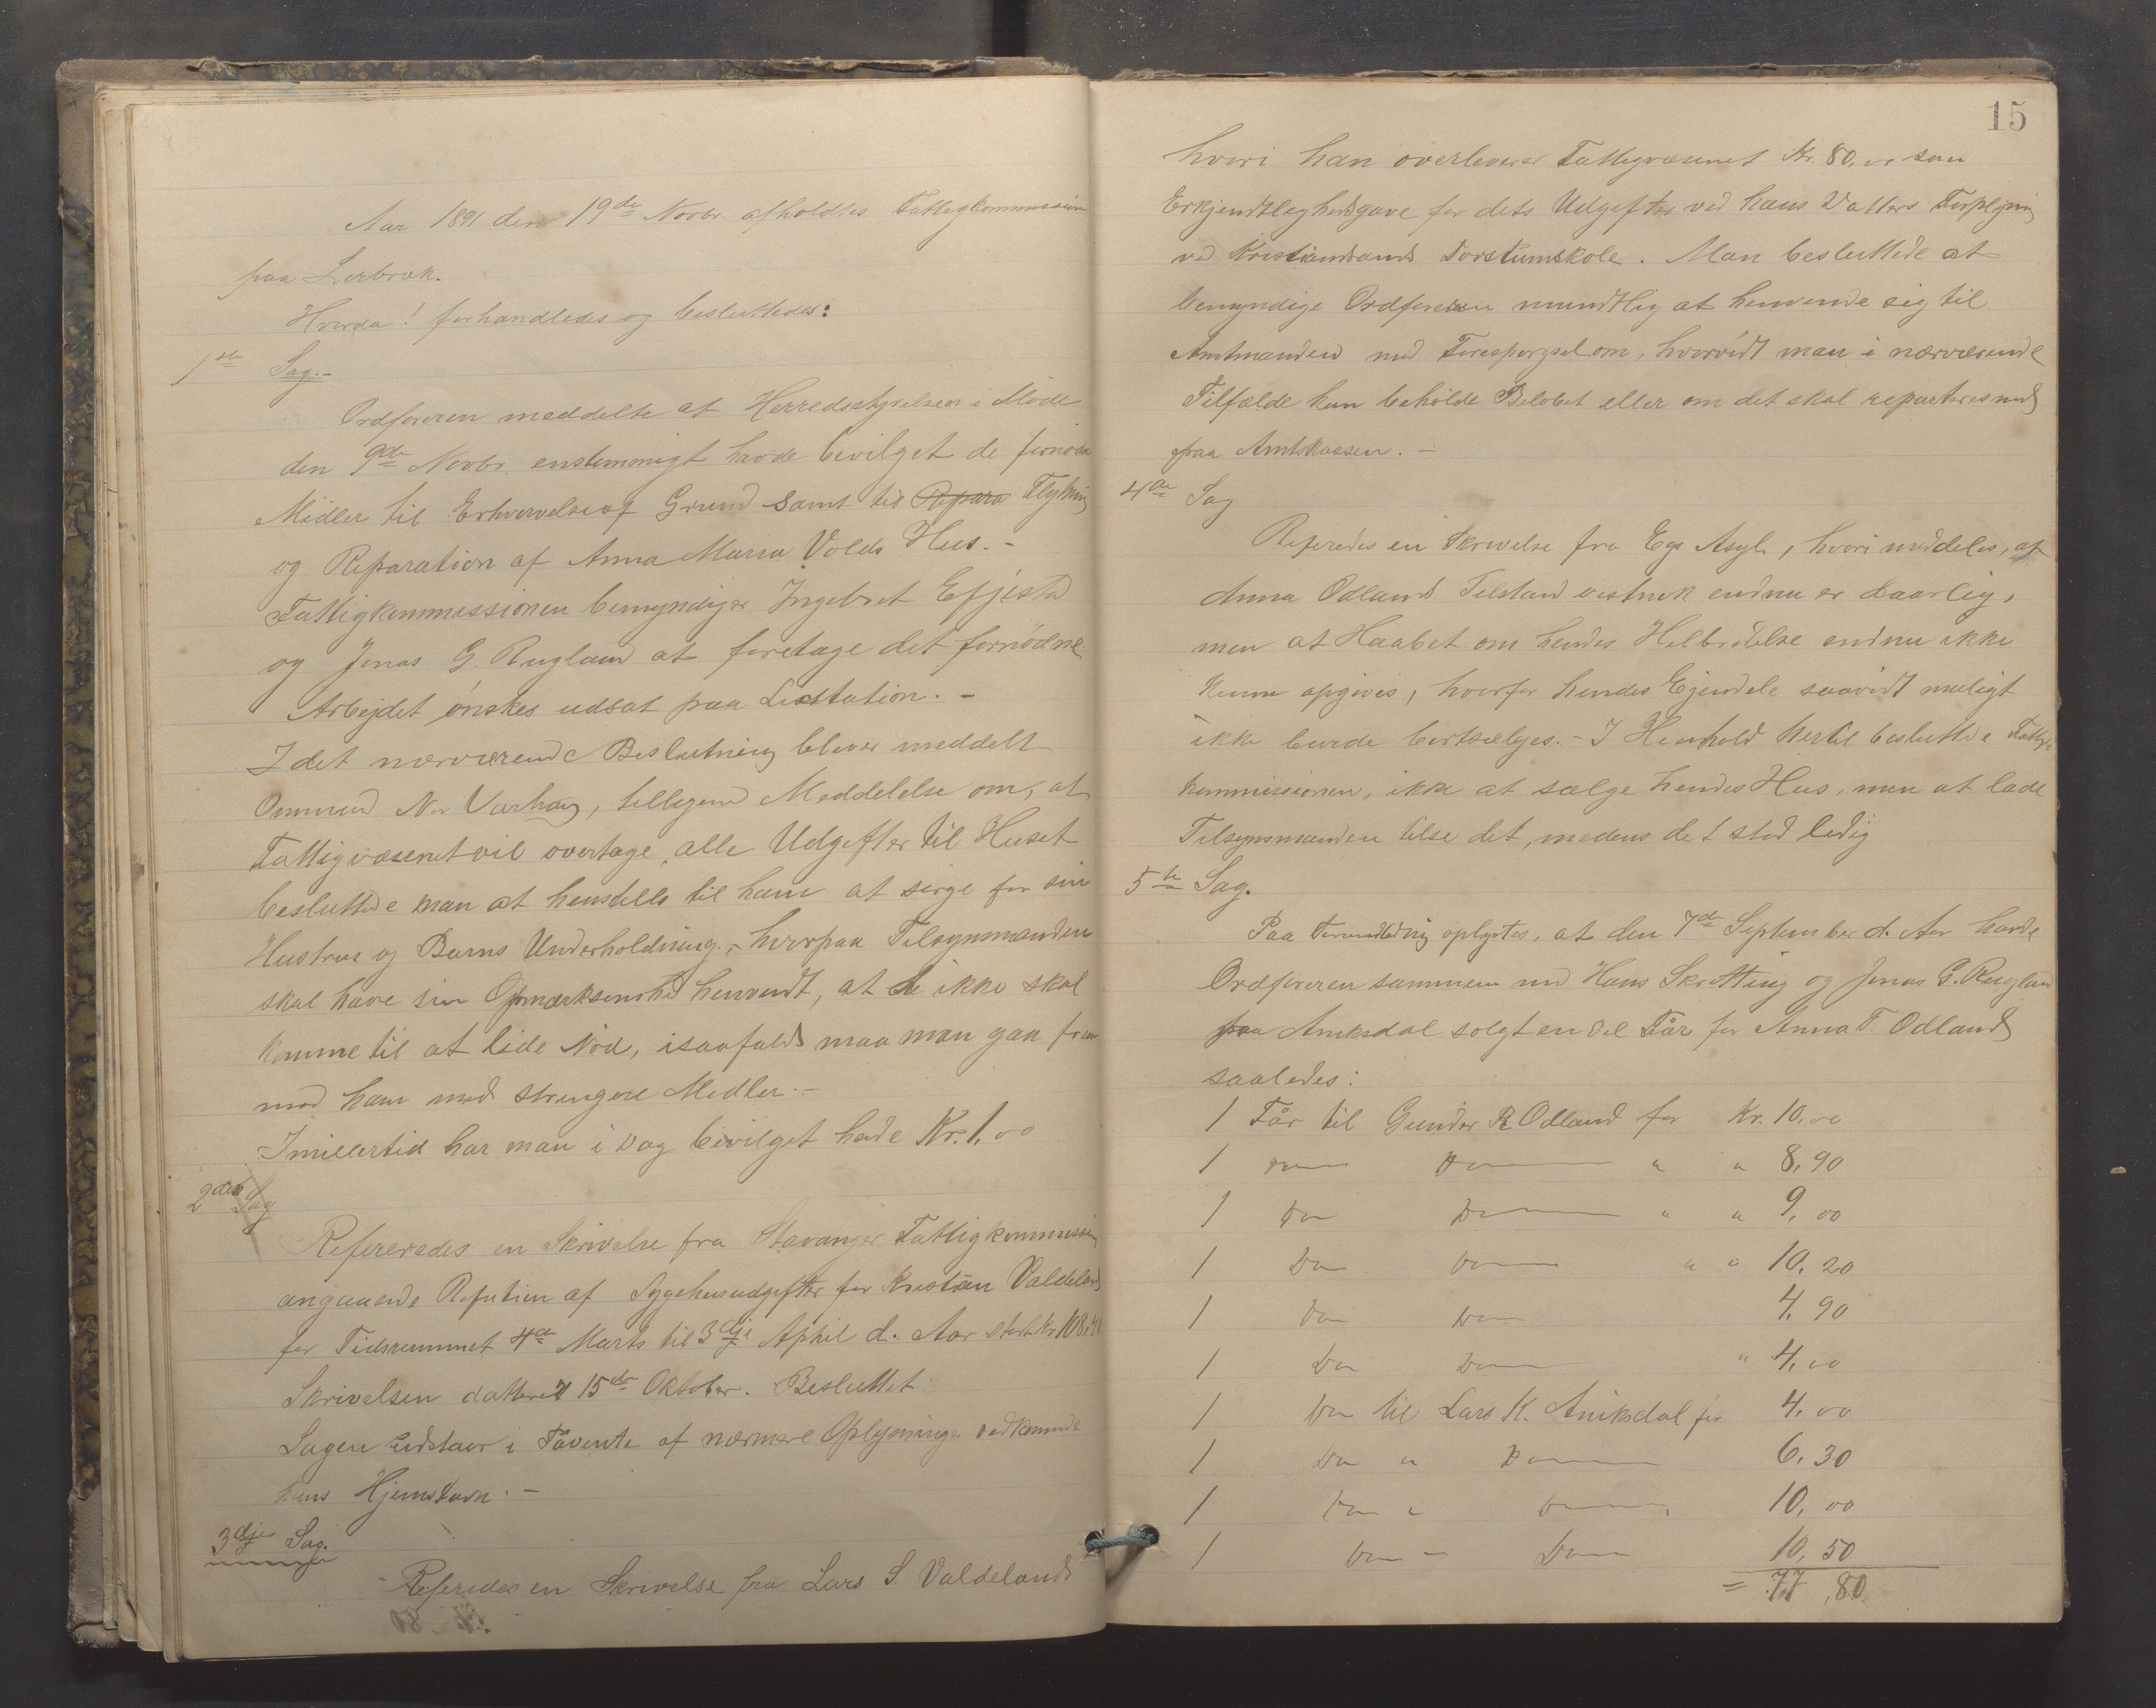 Aar 1891 den 19de Novbr. afholdtes Fattigkommission
paa Lerbræk.
Hvorda! forhandledes og besluttedes:
1ste Sag.-
Ordføreren meddelte at Herredsstyrelsen i Møde
den 9de Novbr. enstemmigt havde bevilget de fornødne
Midler til Erhvervelse af Grund samt til Repara Flytning
og Reparation af Anna Maria Volds Hus.-
Fattigkommissionen bemyndiger Ingebret Efjestad
og Jonas G. Rugland at foretage det fornødne.
Arbejdet ønskes udsat paa Licitation.-
I det nærværende Beslutning bliver meddelt
Ommund N. Varhaug, tilligemed Meddelelse om, at
Fattigvæsenet vil overtage alle Udgifter til Huset
besluttede man at henstille til ham at sørge for sin
Hustrus og Barns Underholdning,- hvorpaa Tilsynsmanden
skal have sin Opmærksomhed henvendt, at de ikke skal
komme til at lide Nød, isaafald maa man gaa frem
mod ham med strengere Midler.-
Imidlertid har man i Dag bevilget hende Kr. 1,00
2den Sag
Refereredes en Skrivelse fra Stavanger Fattigkommission
angaaende Refution af Sygehusudgifter for Kristian Valdeland
for Tidsrummet 4de Marts til 3dje April d. Aar stort Kr. 108,40
Skrivelsen datteret 15de Oktober. Besluttet
Sagen udstaar i Påvente af nærmere Oplysninger vedkommende
hans Hjemstavn.-
3dje Sag.
Referedes en Skrivelse fra Lars S. Valdeland
15
hvori han overleverer Fattigvæsenet Kr. 80,00 som
Erkjendtlighedsgave for dets Udgifter ved hans Datters Forplejning
ved Kristiansands Dovstumskole. Man besluttede at
bemyndige Ordføreren mundtlig at henvende sig til
Amtmanden med Forespørgsel om, hvorvidt man i nærværende
Tilfælde kan beholde Beløbet eller om det skal reparteres med
paa Amtskassen.-
4de Sag
Referedes en Skrivelse fra Egs Asyl, hvori meddeles, at
Anna Odlands Tilstand vistnok endnu er daarlig,
men at Haabet om hendes Helbredelse endnu ikke
kunne opgives, hvorfor hendes Ejendele saavidt muligt
ikke burde bortsælges.- I Henhold hertil besluttede Fattig-
kommissionen, ikke at sælge hendes Hus, men at lade
Tilsynsmanden tilse det, medens det stod ledig
5te Sag.
Paa Foranledning oplystes, at den 7de September d. Aar havde
Ordføreren sammen med Hans Skretting og Jonas G. Rugland
paa Aniksdal solgt en Del Får for Anna T. Odland
saaledes:
1 Får til Gunder R Odland for Kr. 10,00
1 Do Do " " 8,90
1 Do Do " " 9,00
1 Do Do " " 10,20
1 Do Do 4,90
1 Do Do " 4,00
1 Do til Lars K. Aniksdal for 4,00
1 Do " Do 6,30
1 Do " Do 10,00
1 Do - Do 10,50
= 77,80